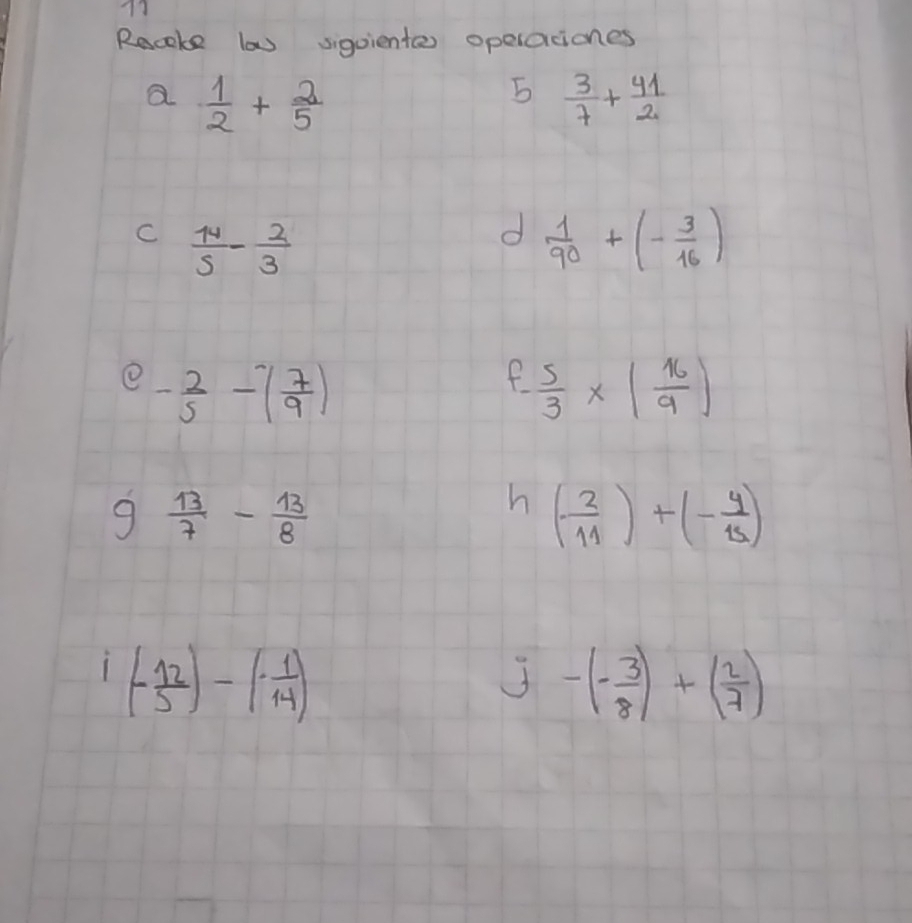 11
Resuelve las siguientes operaciones
a 1/2 + 2/5 b 3/7 + 41/2
c 14/5 - 2/3 d 1/90 + (-3/16)
e -2/5 - -(7/9) f -5/3 x (16/9)
g 13/7 - 13/8 h (-2/11) + (-4/15)
i (-12/5) - (-1/14) j -(-3/8) + (2/7)